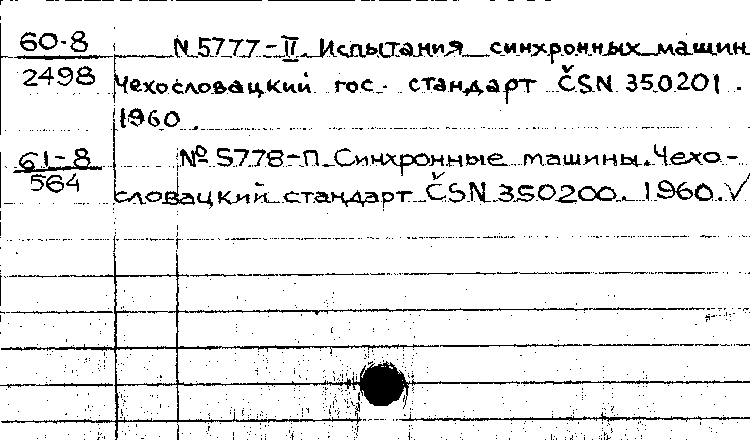 60-8 N 5777-II. Испытания синхронных машин
2498 Чехословацкий гос. стандарт ČSN 350201.
1960.
61-8 № 5778-П. Синхронные машины. Чехо-
564 словацкий стандарт ČSN 350200. 1960. √